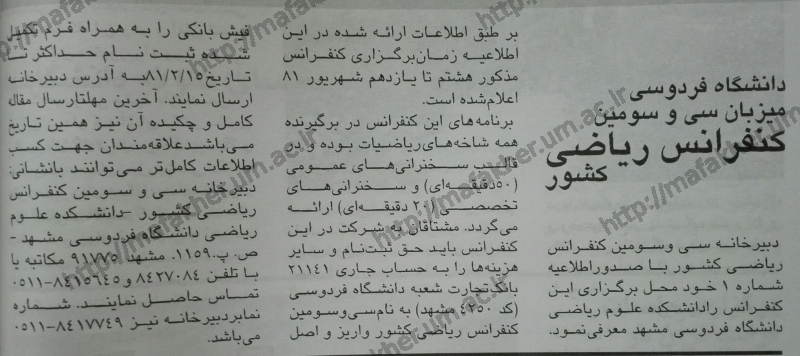 دانشگاه فردوسی
میزبان سی و سومین
کنفرانس ریاضی
کشور
دبیرخانه سی وسومین کنفرانس
ریاضی کشور با صدوراطلاعیه
شماره ۱ خود محل برگزاری این
کنفرانس رادانشکده علوم ریاضی
دانشگاه فردوسی مشهد معرفی‌نمود.
بر طبق اطلاعات ارائه شده در این
اطلاعیه زمان‌برگزاری کنفرانس
مذکور هشتم تا یازدهم شهریور ۸۱
اعلام‌شده است.
برنامه‌های این کنفرانس در برگیرنده
همه شاخه‌های‌ریاضیات بوده و در
قالب سخنرانی‌های عمومی
(۵۰دقیقه‌ای) و سخنرانی‌های
تخصصی (۲۰ دقیقه‌ای) ارائه
می‌گردد. مشتاقان به شرکت در این
کنفرانس باید حق ثبت‌نام و سایر
هزینه‌ها را به حساب جاری ۲۱۱۴۱
بانک‌تجارت شعبه دانشگاه فردوسی
(کد ۴۲۵۰ مشهد) به نام‌سی‌وسومین
کنفرانس ریاضی کشور واریز و اصل
فیش بانکی را به همراه فرم تکمیل
شده ثبت نام حداکثر تا
تاریخ۸۱/۲/۱۵به آدرس دبیرخانه
ارسال نمایند. آخرین مهلتارسال مقاله
کامل و چکیده آن نیز همین تاریخ
می‌باشدعلاقه‌مندان جهت کسب
اطلاعات کامل‌تر می‌توانند بانشانی:
دبیرخانه سی و سومین کنفرانس
ریاضی کشور -دانشکده علوم
ریاضی دانشگاه فردوسی مشهد-
ص. پ.۱۱۵۹. مشهد ۹۱۷۷۵ مکاتبه یا
با تلفن ۸۴۲۷۰۸۴ و۸۴۱۵۶۴۵-۰۵۱۱
تماس حاصل نمایند. شماره
نمابردبیرخانه نیز ۸۴۱۷۷۴۹-۰۵۱۱
می‌باشد.
http://mafakher.um.ac.ir